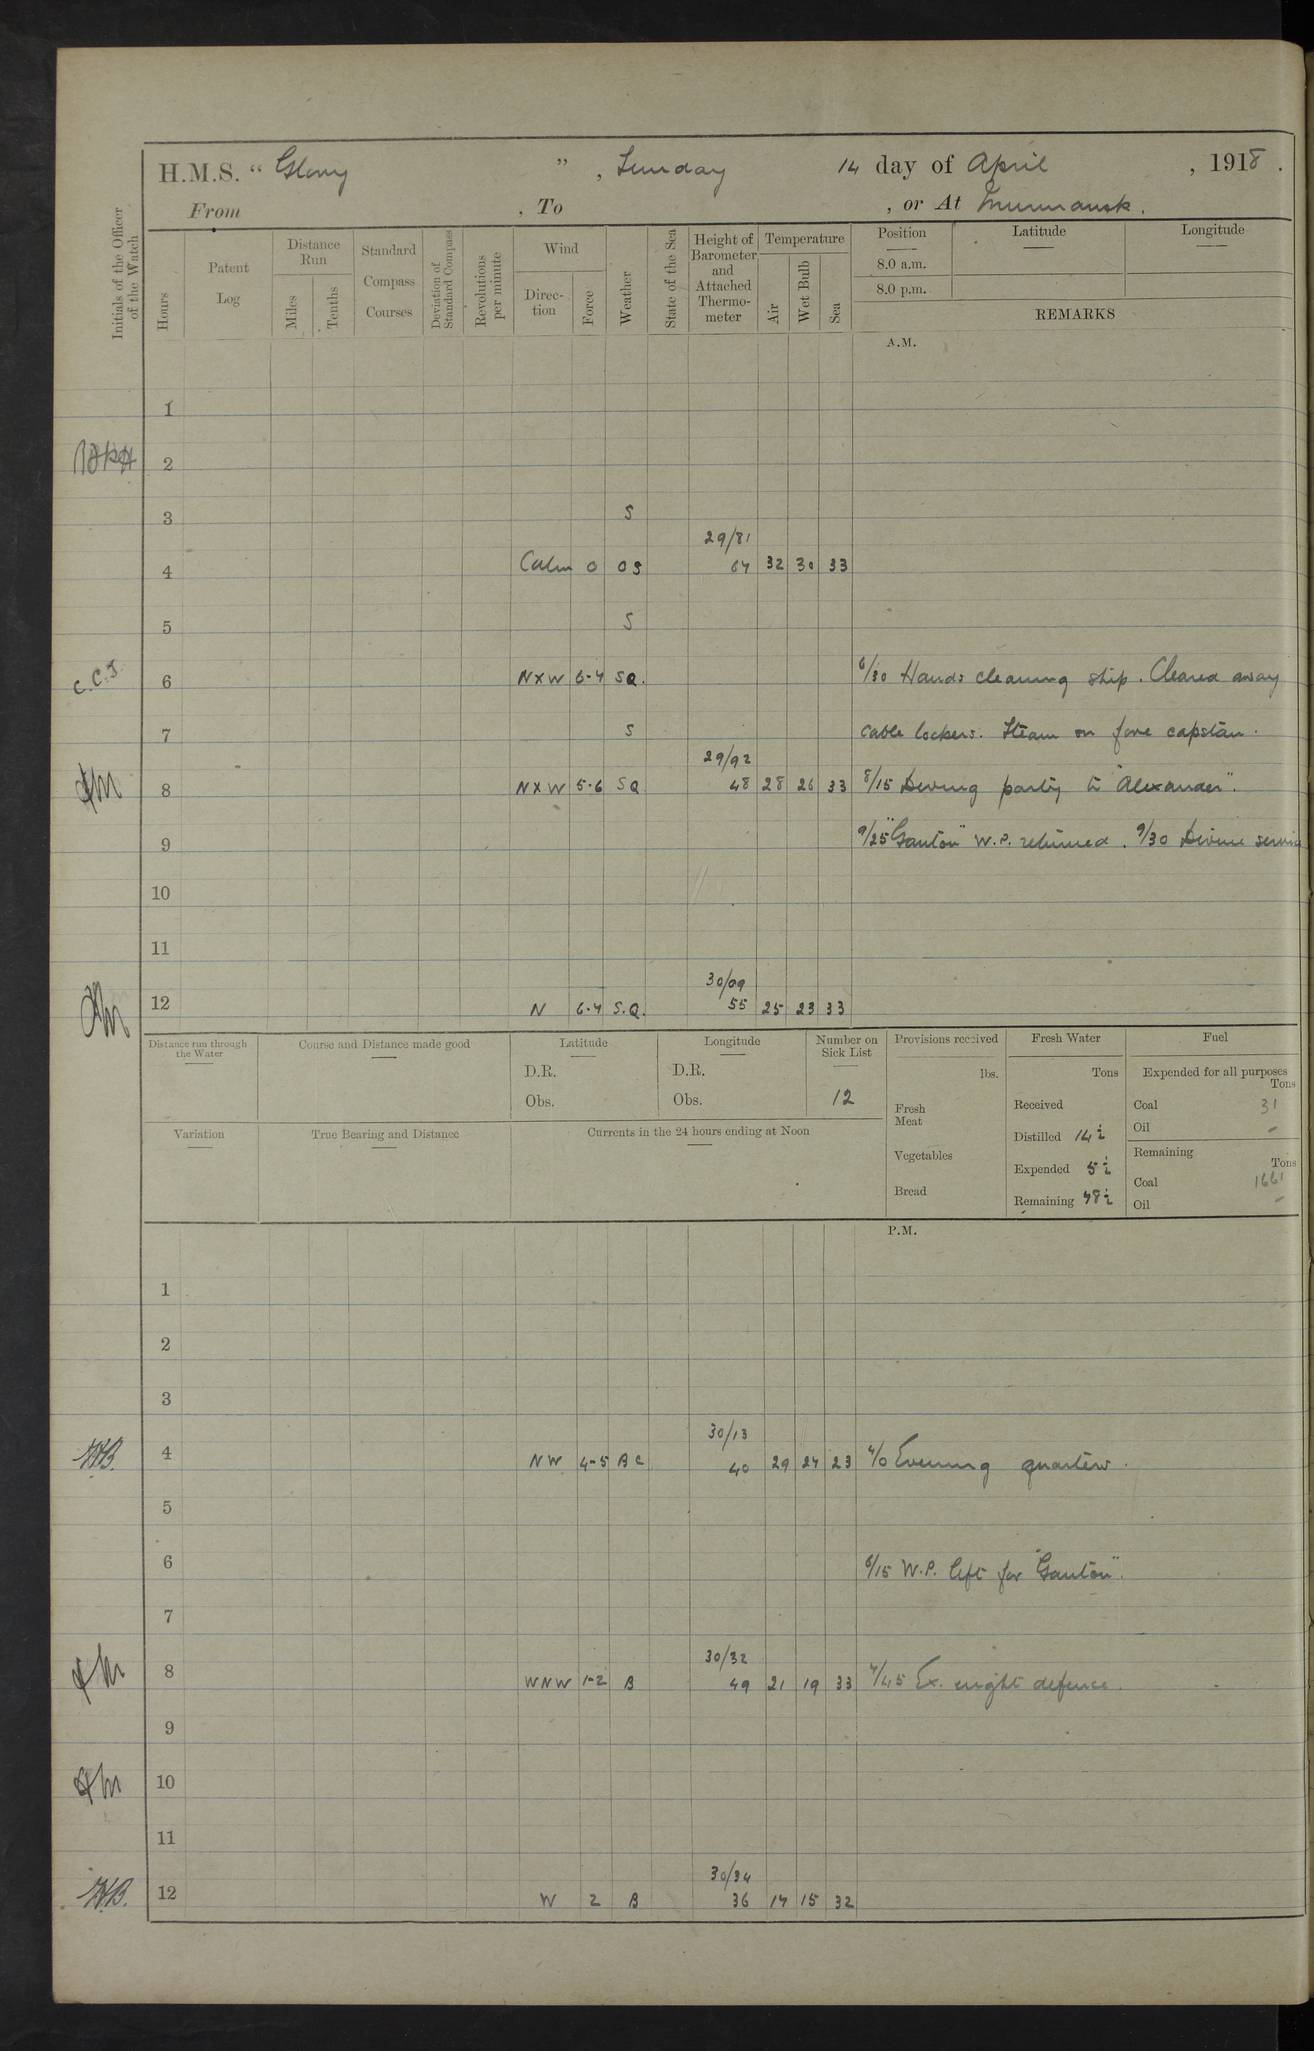 H.M.S. “ Glory ”, Sunday 14 day of April , 1918.
From , To , or At Murmansk.
Initials of the Officer of the Watch
Hours
Patent Log
Distance Run
Miles
Tenths
Standard Compass Courses
Deviation of Standard Compass
Revolutions per minute
Wind
Direc-tion
Force
Weather
State of the Sea
Height of Barometer and Attached Thermo-meter
Temperature
Air
Wet Bulb
Sea
Position
8.0 a.m.
8.0 p.m.
Latitude
Longitude
REMARKS
A.M.
1
2
3 S
29/81
4 Calm 0 OS 67 32 30 33
5 S
C.C.J. 6 NXW 6-7 SQ. 6/30 Hands cleaning ship. Cleared away
7 S cable lockers. Steam on fore capstan.
29/92
8 NXW 5-6 SQ 48 28 26 33 8/15 Diving party to "Alexander".
9 9/25 "Ganton" W.P. returned. 9/30 Divine service
10
11
30/09
12 N 6-7 S.Q. 55 25 23 33
Distance run through the Water
Course and Distance made good
Latitude
D.R.
Obs.
Longitude
D.R.
Obs.
Number on Sick List
12
Provisions received
lbs.
Fresh Meat
Vegetables
Bread
Fresh Water
Tons
Received
Distilled 14½
Expended 5½
Remaining 78½
Fuel
Expended for all purposes
Tons
Coal 31
Oil -
Remaining
Tons
Coal 1661
Oil -
Variation
True Bearing and Distance
Currents in the 24 hours ending at Noon
P.M.
1
2
3
30/13
H.B. 4 NW 4-5 BC 40 29 27 23 4/0 Evening quarters.
5
6 6/15 W.P. left for "Ganton".
7
30/32
8 WNW 1-2 B 49 21 19 33 7/45 Ex. night defence.
9
10
11
30/34
H.B. 12 W 2 B 36 17 15 32